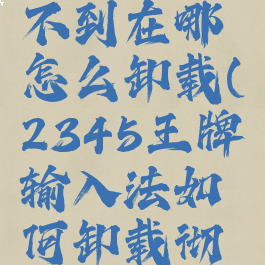 不到在哪
怎么卸载(
2345王牌
输入法如
何卸载彻